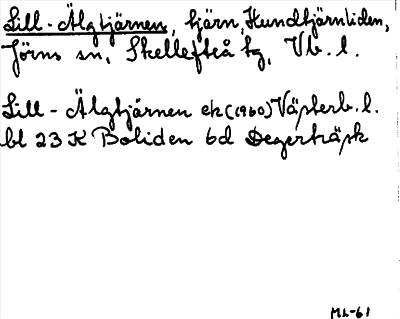 Lill-Älgtjärnen, tjärn, Hundtjärnliden,
Jörns sn, Skellefteå tg, Vb. l.
Lill-Älgtjärnen ek (1960) Västerb. l.
bl 23 K Boliden 6d Degerträsk
ML-61